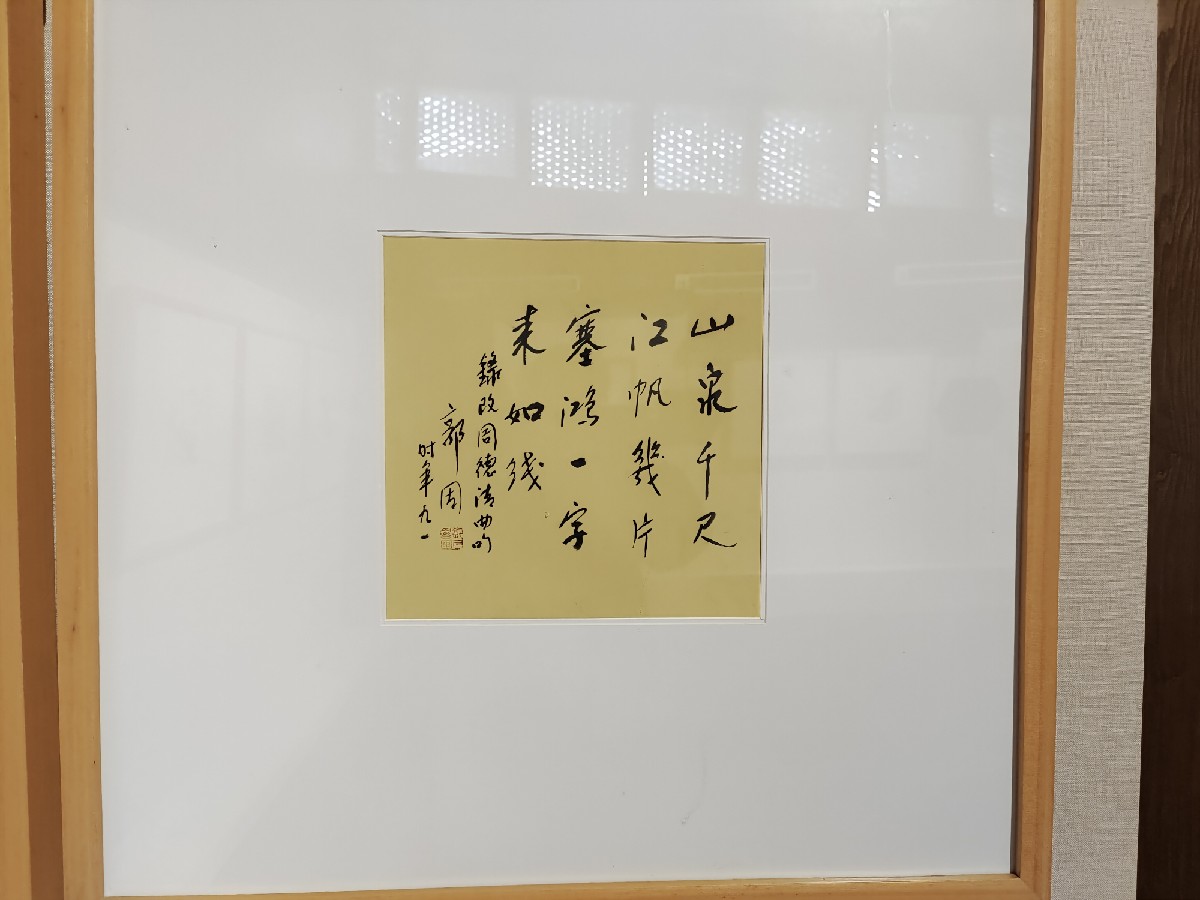 山泉千尺
江帆幾片
塞鴻一字
来如线
錄改周德清曲吟
郭周
时年九一